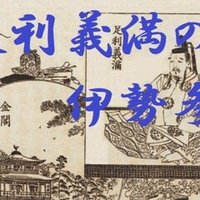 足利義満の
伊勢参
足利義満
金閣